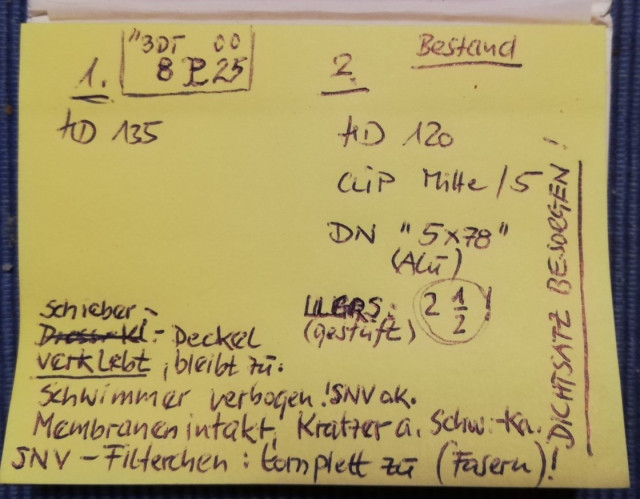 Bestand
"3DT 00
1. 8 P 25
2.
HD 135
HD 120
CLiP Mitte / 5
DN "5x78"
(Alu)
ULLRS: 2 1/2!
(gestuft)
Schieber-
Drossekl.- Deckel
verklebt, bleibt zu.
Schwimmer verbogen! SNV ok.
Membranen intakt, Kratzer a. Schw.-Ka.
SNV - Filterchen: komplett zu (Fasern)!
DICHTSATZ BESORGEN!